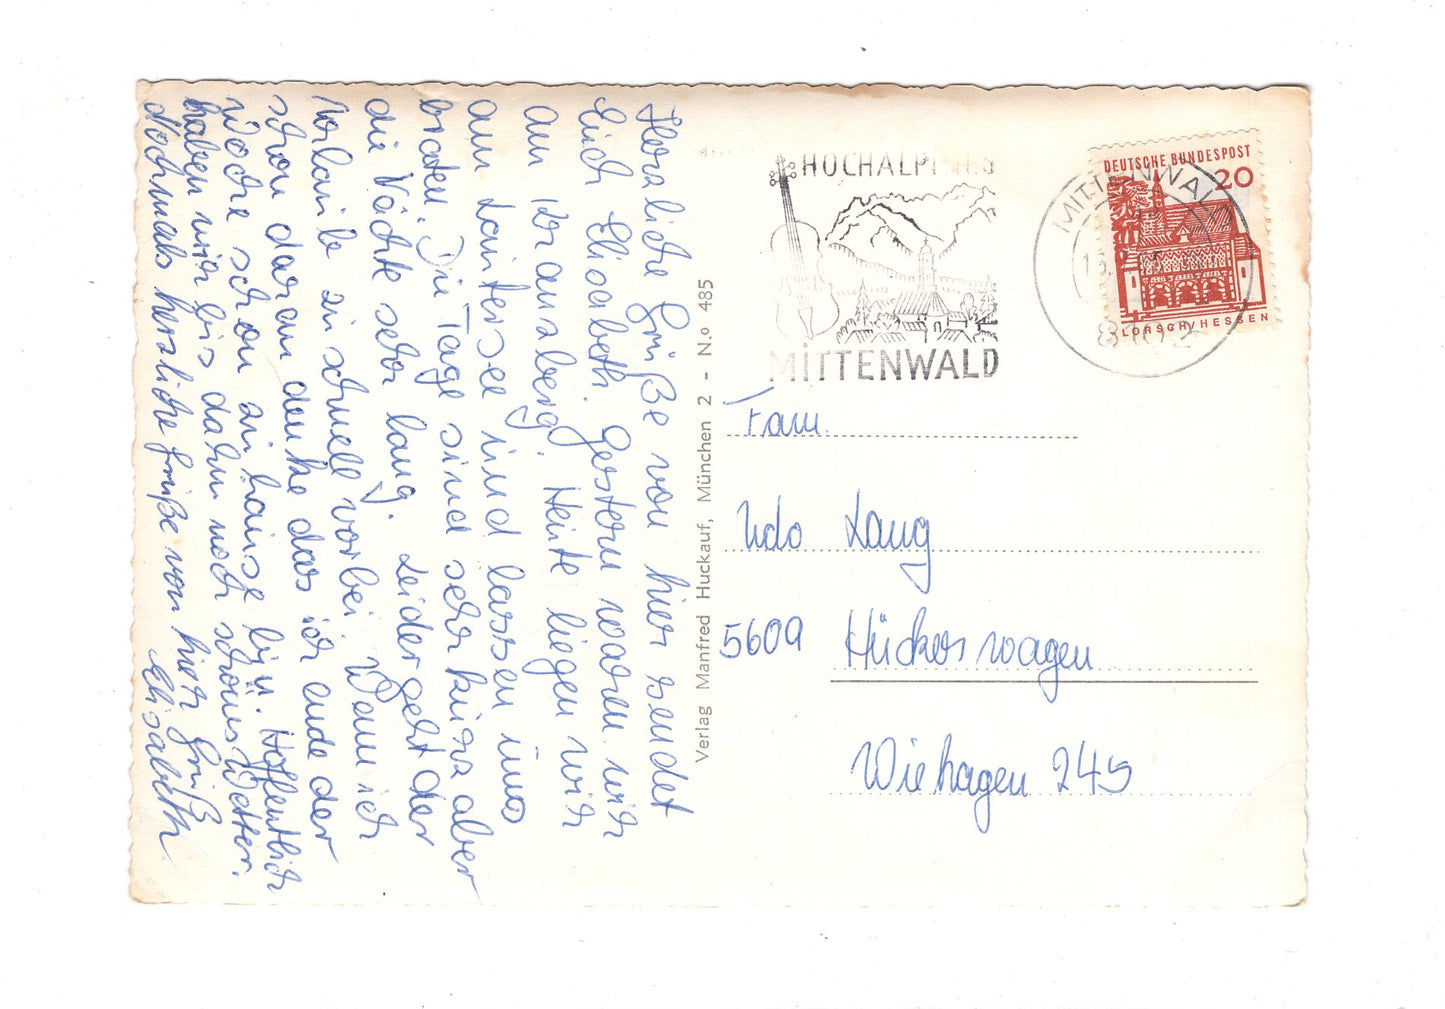 Herzliche Grüße von hier sendet
Euch Elisabeth. Gestern waren wir
am Kranzberg. Heute liegen wir
am Lautersee und lassen uns
braten. Die Tage sind sehr kurz aber
die Nächte sehr lang. Leider geht der
Urlaub zu schnell vorbei. Wenn ich
schon daran denke das ich ende der
Woche schon zu hause bin. Hoffentlich
haben wir bis dahin noch schönes Wetter.
Nochmals herzliche Grüße von hier
Elisabeth
Verlag Manfred Huckauf, München 2 - N.º 485
MITTENWALD
DEUTSCHE BUNDESPOST
20
LORSCH/HESSEN
MITTENWALD
Fam.
Udo Lang
5609 Hückeswagen
Wiehagen 245